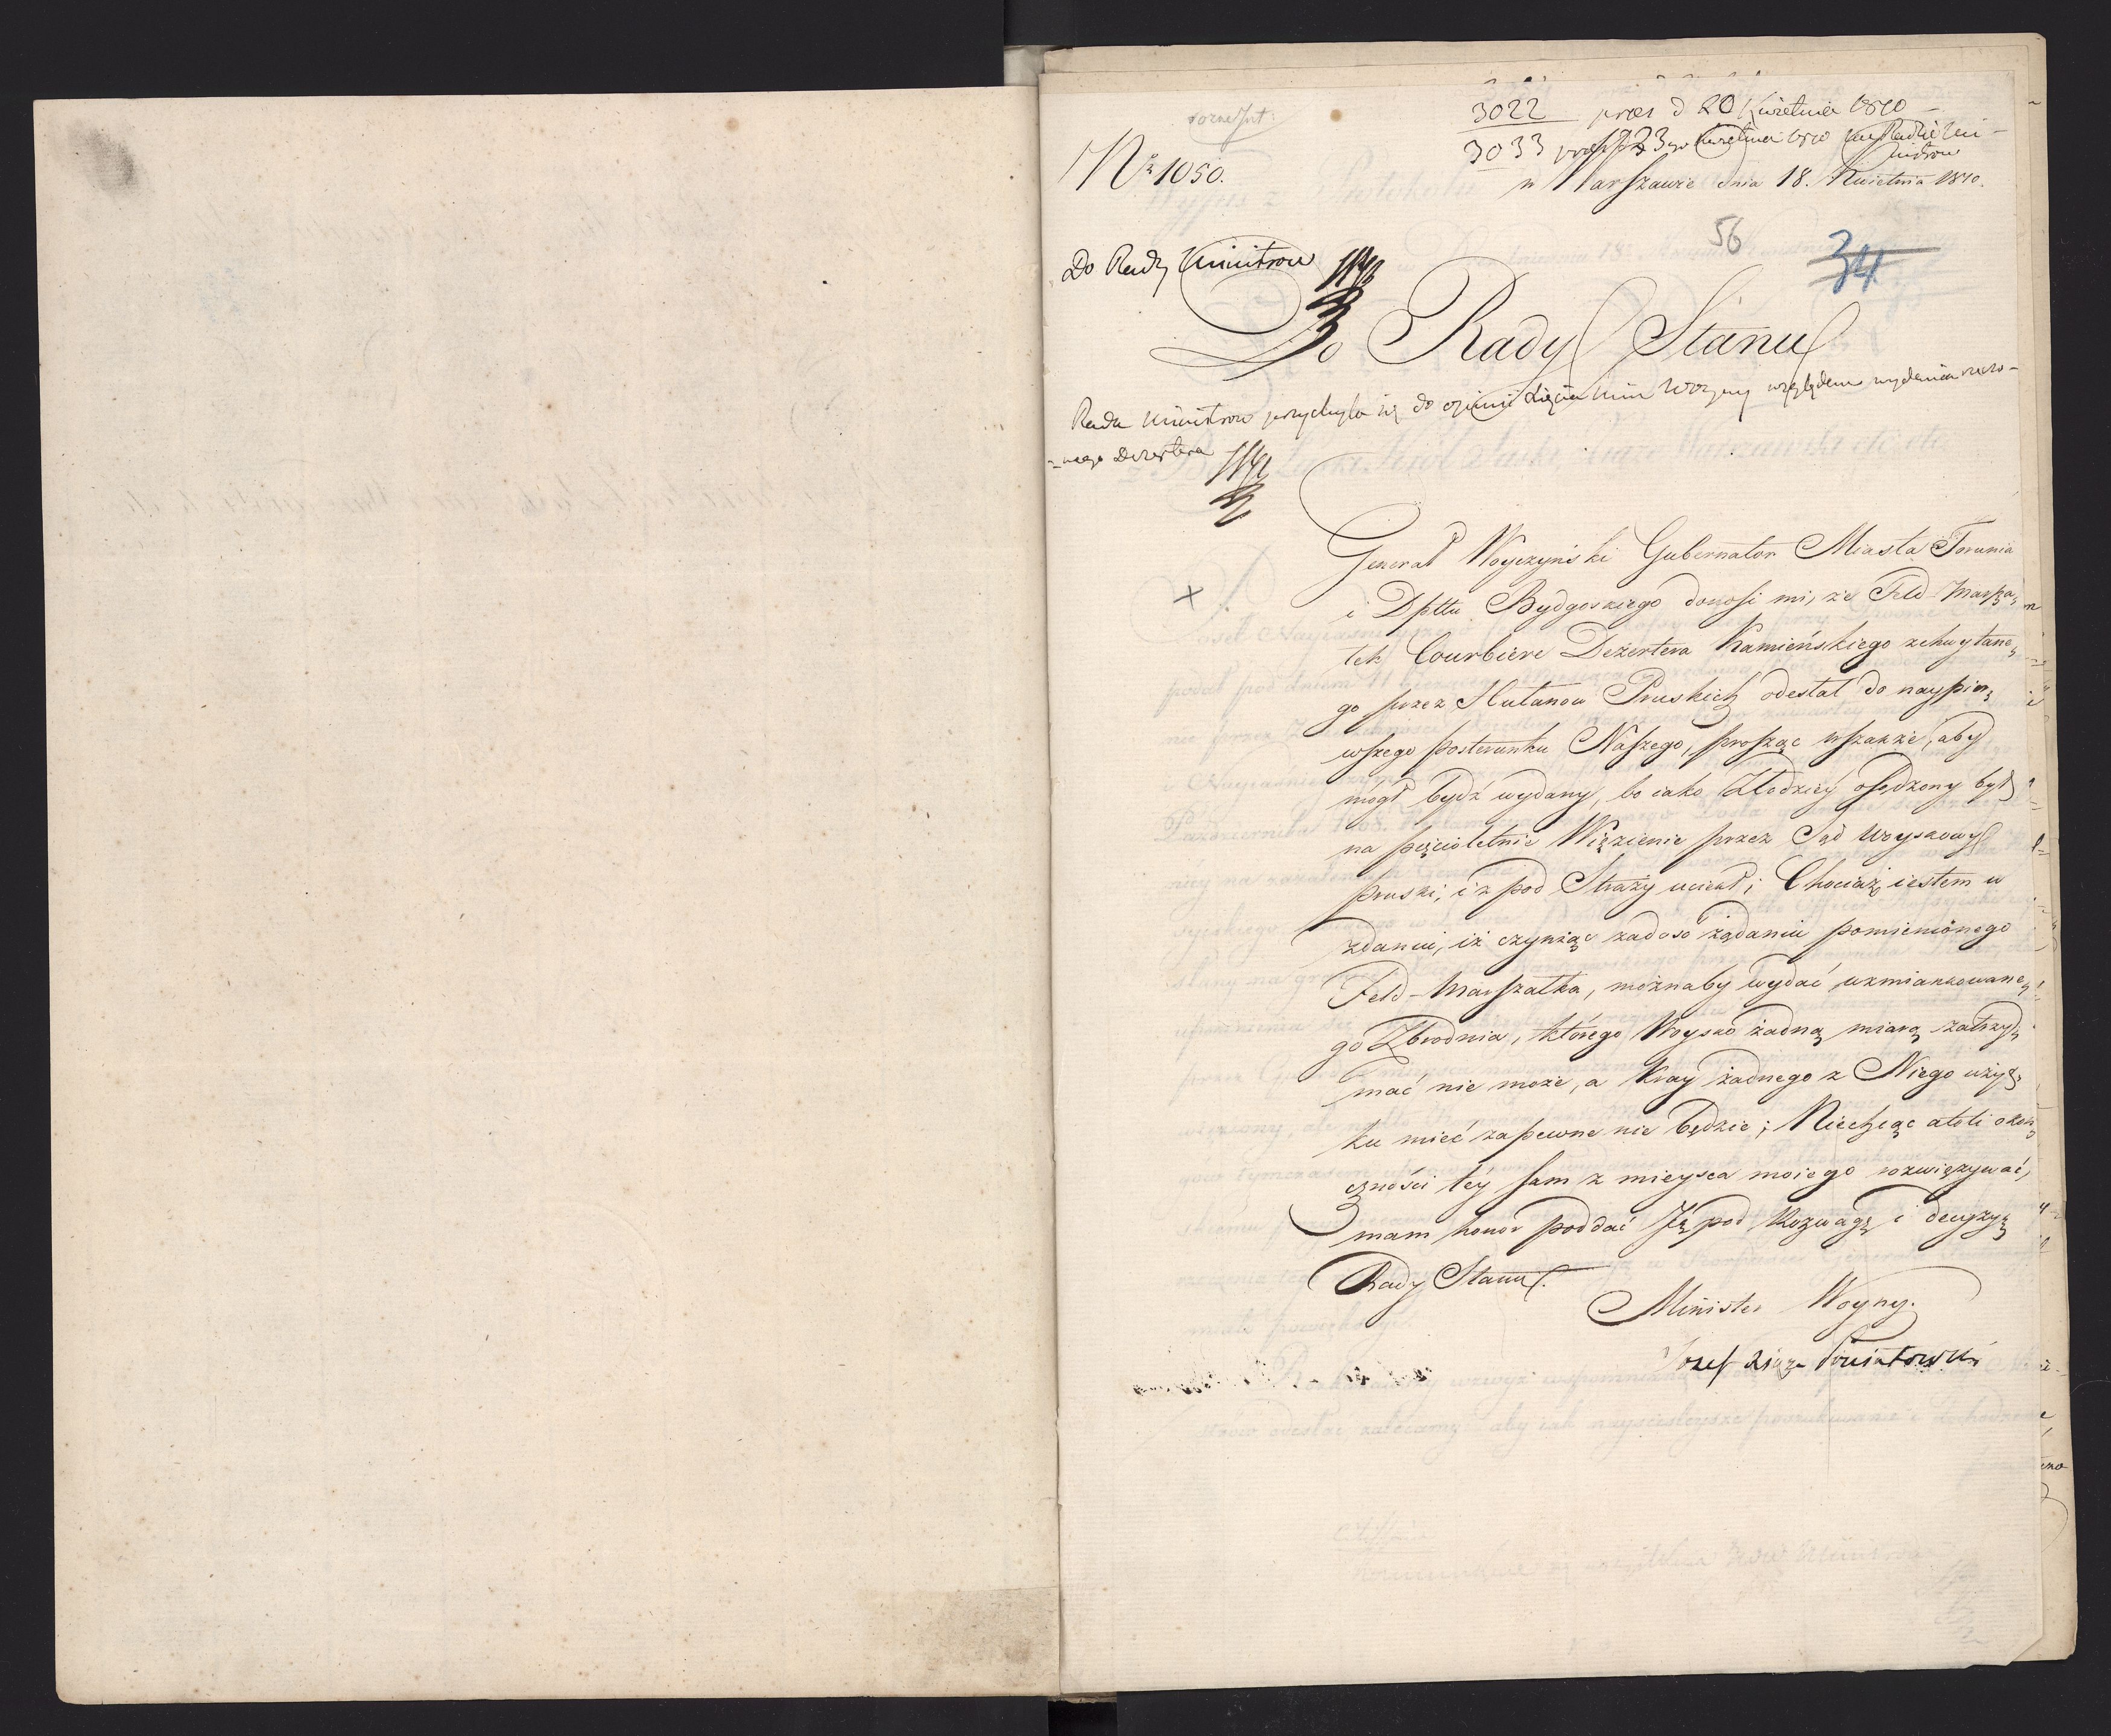 3022 prez d 20 Kwietnia 1810
3033 prez d 23 go Kwietnia 1810 w Radzie Mini-
strow
Nr 1050.
w Warszawie dnia 18. Kwietnia 1810.
56
34
Do Rady Ministrow
Do Rady Stanu
Rada Ministrow przychyla się do opinii Xięcia Min Woyny względem wydania rzeczo-
=nego Dezertera
Generał Woyczyński Gubernator Miasta Torunia
i Dpttu Bydgoskiego donosi mi, że Feld-Marsza-
łek Courbiere Dezertera Kamieńskiego schwytane-
go przez Hułanow Pruskich odesłał do naypier-
wszego posterunku Naszego, prosząc wszakże, aby
mógł bydź wydany, bo iako Złodziéy osądzony był
na pięcioletnie Więzienie przez Sąd Woyskowy
pruski, i z pod Straży uciekł; Chociaż iestem w
zdaniu, iż czyniąc zadosć żądaniu pomienionego
Feld-Marszałka, możnaby wydać wzmiankowane-
go Zbrodnia, którego Woysko żadną miarą zatrzy-
mać nie może, a Kray żadnego z Niego użyt-
ku mieć zapewne nie będzie; Niechcąc atoli okoli-
czności téy sam z mieysca moiego rozwięzywać,
mam honor poddać Ją pod Rozwagę i decyzyę
Rady Stanu.
Minister Woyny.
Jozef Xiąże Poniatowski